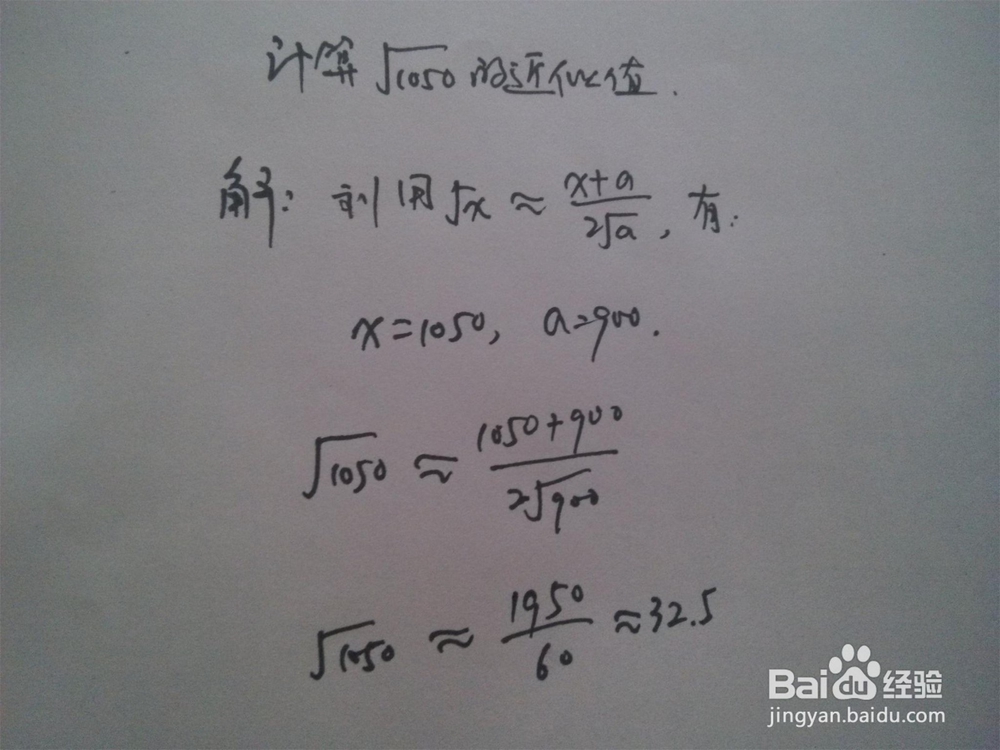 计算√1050的近似值.
解: 利用√x ≈ (x+a)/(2√a), 有:
x=1050, a=900.
√1050 ≈ (1050+900)/(2√900)
√1050 ≈ 1950/60 ≈32.5
Baidu经验
jingyan.baidu.com